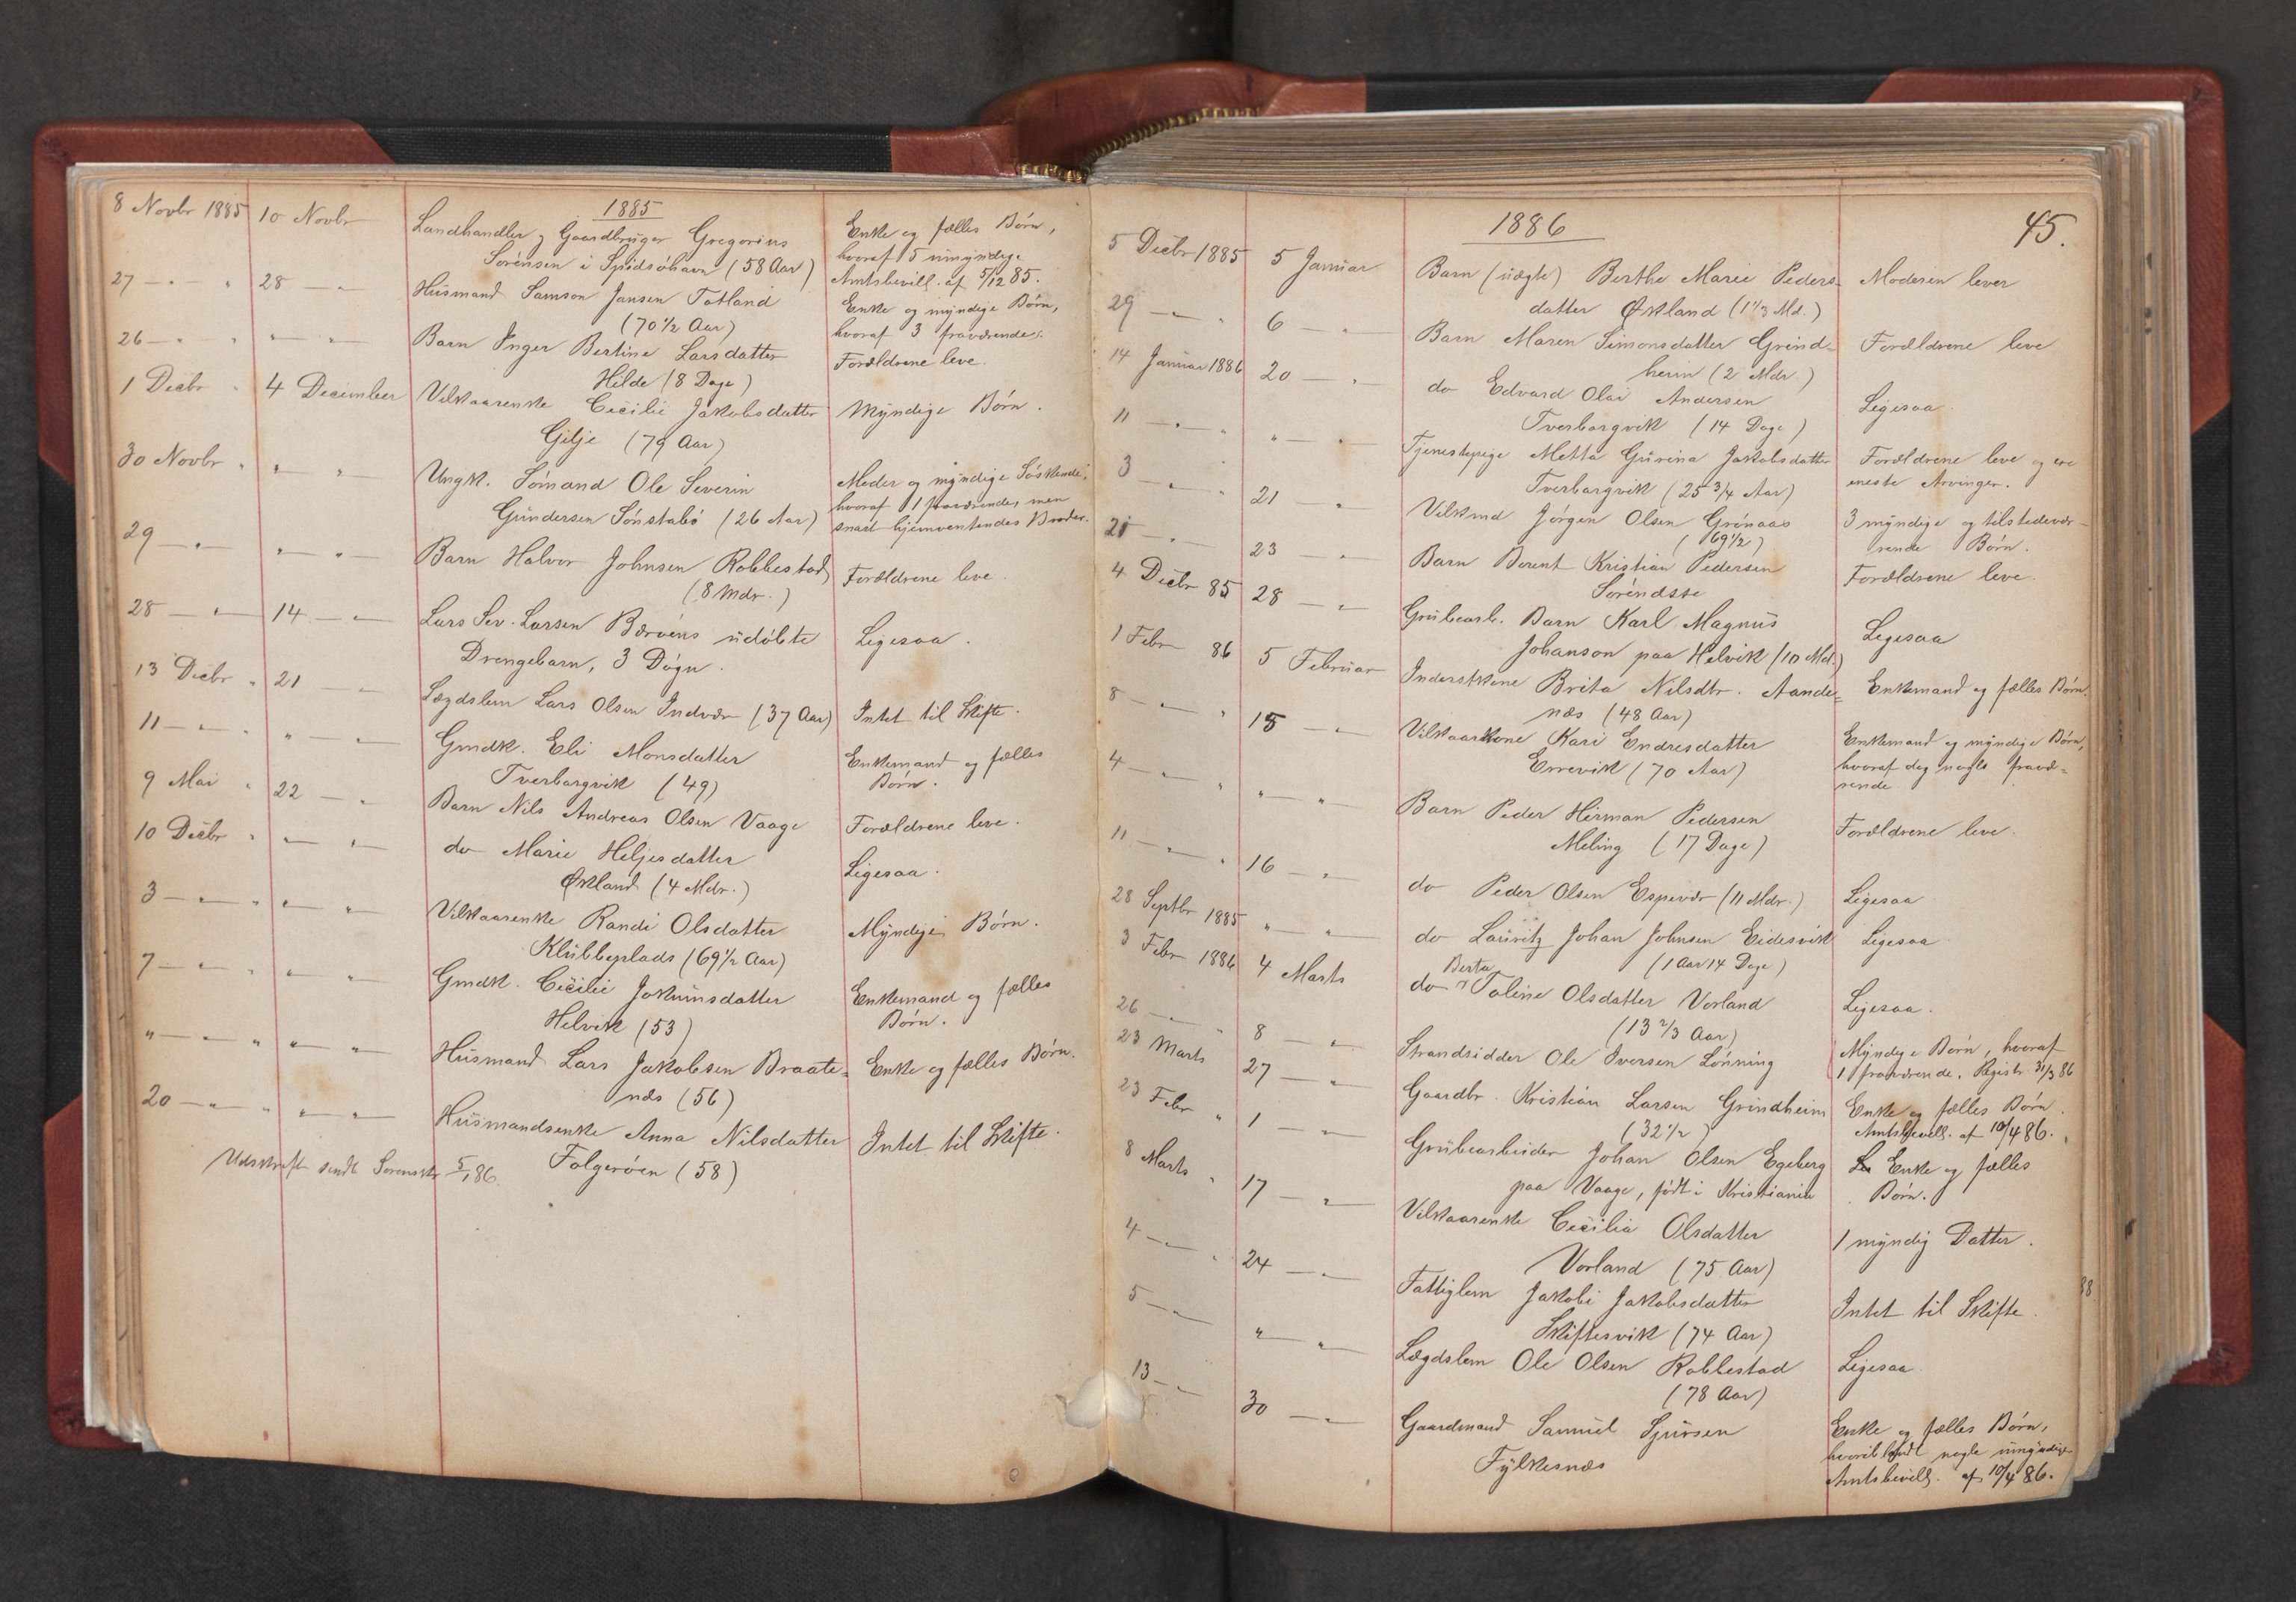 1885
8 Novbr 1885 10 Novbr Landhandler og Gaardbruger Gregorius Enke og fælles Børn,
Sørensen i Spidsøhavn (58 Aar) hvoraf 5 umyndige
Amtsbevill. af 5/12 85.
27 — " — " 28 — " Husmand Samson Jansen Totland Enke og myndige Børn,
(70 1/2 Aar) hvoraf 3 fraværende.
26 — " " " — " Barn Inger Bertine Larsdatter Forældrene leve.
Hilde (8 Dage)
1 Decbr " 4 December Vilkaarenke Cecilie Jakobsdatter Myndige Børn.
Gilje (79 Aar)
30 Novbr " " " Ungk. Sømand Ole Severin Moder og myndige Søskende,
Gundersen Sønstabø (26 Aar) hvoraf 1 fraværende, men
snart hjemventendes Broder.
29 — " — " — " — Barn Halvor Johnsen Robbestad Forældrene leve.
(8 Mdr.)
28 — " — 14 — " — Lars Sev. Larsen Børvens udøbte Ligesaa.
Drengebarn, 3 Døgn.
13 Decbr " 21 — " Lægdslem Lars Olsen Indvær (37 Aar) Intet til Skifte.
11 — " — " " — " — Gmdk. Eli Monsdatter Enkemand og fælles
Tverborgvik (49) Børn.
9 Mai " 22 — " Barn Nils Andreas Olsen Vaage Forældrene leve.
10 Decbr " " — " — do Marie Heljesdatter Ligesaa.
Økland (4 Mdr.)
3 — " — " " — " Vilkaarenke Randi Olsdatter Myndige Børn.
Klubbeplads (69 1/2 Aar)
7 — " — " " — " Gmdk. Cecilie Jokumsdatter Enkemand og fælles
Helvik (53) Børn.
" — " — " " — " Husmand Lars Jakobsen Braate= Enke og fælles Børn.
næs (56)
20 — " — " " — " Husmandsenke Anna Nilsdatter Intet til Skifte.
Folgerøen (58)
Udskrift sendt Sorenskr 5/1 86.
1886 45.
5 Decbr 1885 5 Januar Barn (uægte) Berthe Marie Peders= Moderen lever
datter Økland (1 1/3 Md.)
29 — " — " 6 — " Barn Maren Simonsdatter Grind= Forældrene leve
heim (2 Mdr.)
14 Januar 1886 20 — " — do Edvard Olai Andersen Ligesaa.
Tverborgvik (14 Dage)
11 — " — " " — " Tjenestepige Metta Gurina Jakobsdatter Forældrene leve og ere
Tverborgvik (25 3/4 Aar) eneste Arvinger.
3 — " — " 21 — " Vilkmd Jørgen Olsen Grønaas 3 myndige og tilstedevæ=
(69 1/2) rende Børn.
21 — " — 23 — " Barn Berent Kristian Pedersen Forældrene leve.
4 Decbr 85 28 — " Grubearb. Barn Karl Magnus Ligesaa
Johanson paa Helvik (10 Md.)
1 Febr 86 5 Februar Inderstkone Brita Nilsdtr. Aande= Enkemand og fælles Børn.
næs (48 Aar)
8 — " — " 15 — " Vilkaarkone Kari Endresdatter Enkemand og myndige Børn,
Errevik (70 Aar) hvoraf dog nogle fravæ=
rende
4 — " — " " — " — Barn Peder Herman Pedersen Forældrene leve.
Meling (17 Dage)
11 — " — " 16 — " do Peder Olsen Espevær (11 Mdr.) Ligesaa
28 Septbr 1885 " — " — do Lauritz Johan Johnsen Eidesvik Ligesaa
(1 Aar 14 Dage)
3 Febr 1886 4 Marts do Berta Toline Olsdatter Vorland Ligesaa.
(13 2/3 Aar)
26 — " — " 8 — " Strandsidder Ole Iversen Lønning Myndige Børn, hvoraf
1 fraværende. Registr. 31/3 86
23 Marts 27 — " Gaardbr. Kristian Larsen Grindheim Enke og fælles Børn.
(32 1/2) Amtsbevill. af 10/4 86.
23 Febr " 1 — " Grubearbeider Johan Olsen Egeberg Enke og fælles
paa Vaage, født i Kristiania Børn.
8 Marts " 17 — " Vilkaarenke Cecilia Olsdatter 1 myndig Datter.
Vorland (75 Aar)
4 — " — " 24 — " Fattiglem Jakobi Jakobsdatter Intet til Skifte.
Skiftesvik (74 Aar)
5 — " — " — " — Lægdslem Ole Olsen Robbestad Ligesaa
(78 Aar)
13 — " — 30 — " Gaardmand Samuel Sjursen Enke og fælles Børn,
Fylkesnæs hvoriblandt nogle umyndige.
Amtsbevill. af 10/4 86.